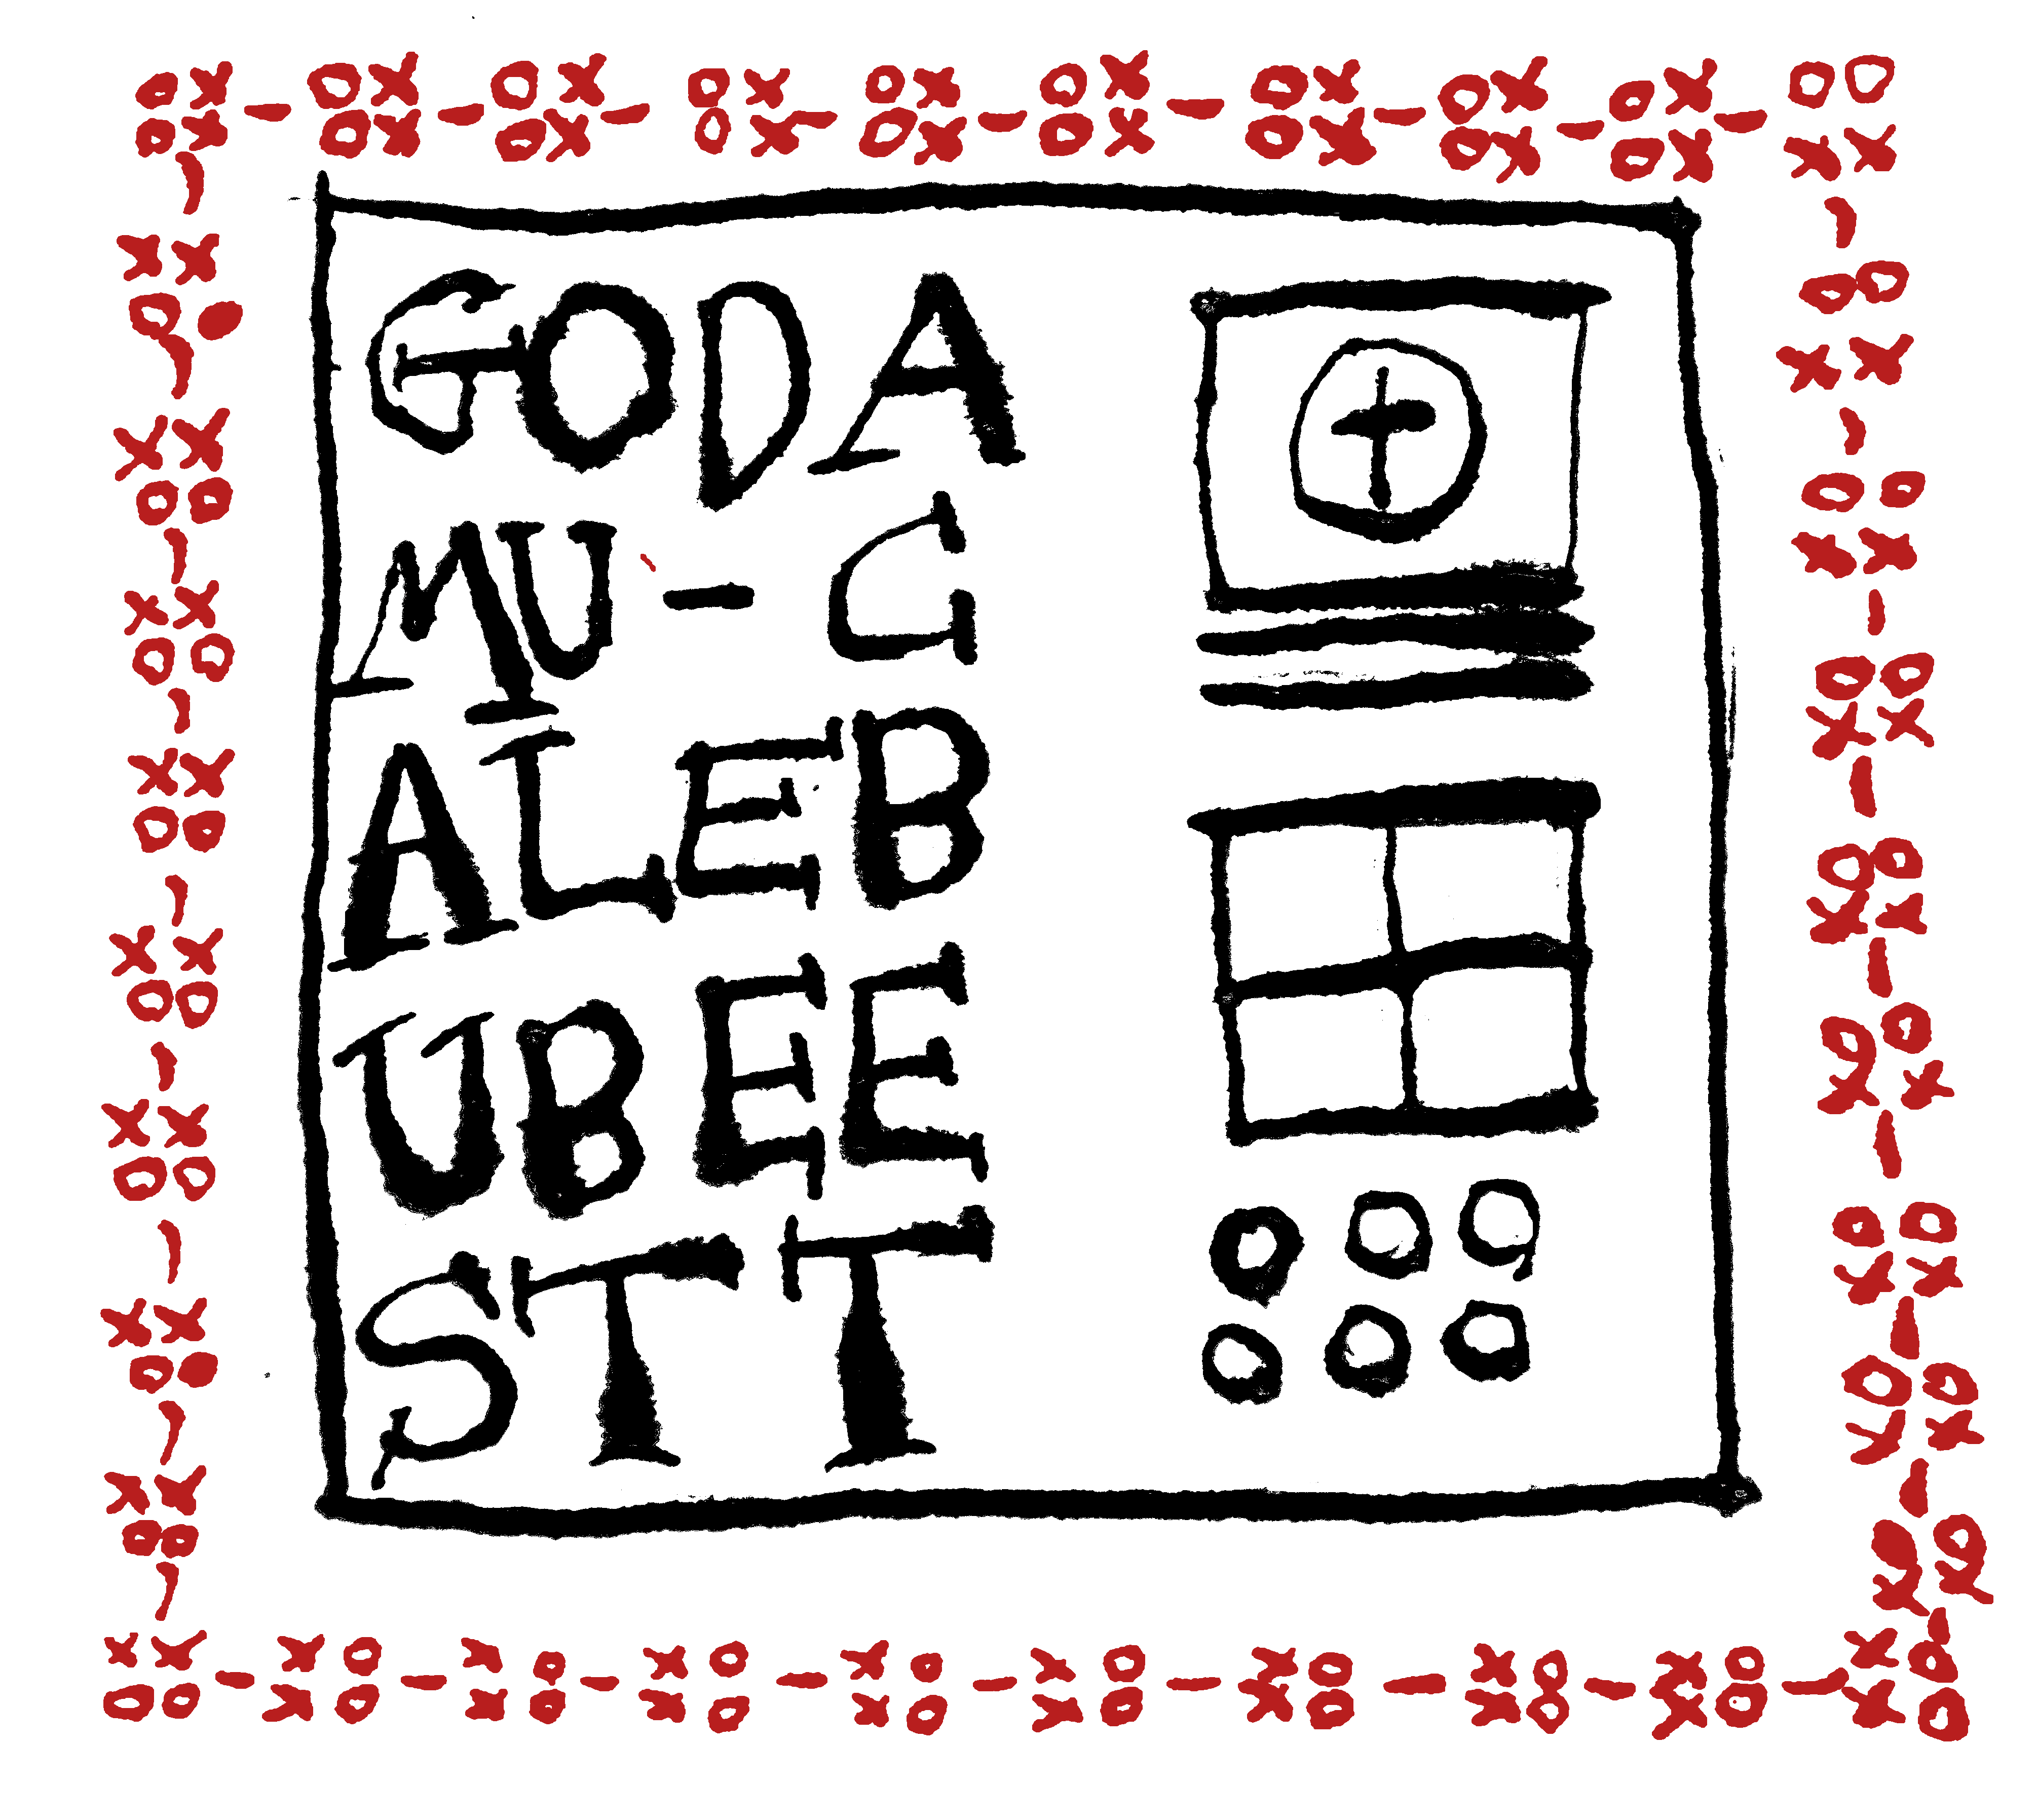 GODA
MU-C
ALEB
UBEE
STT